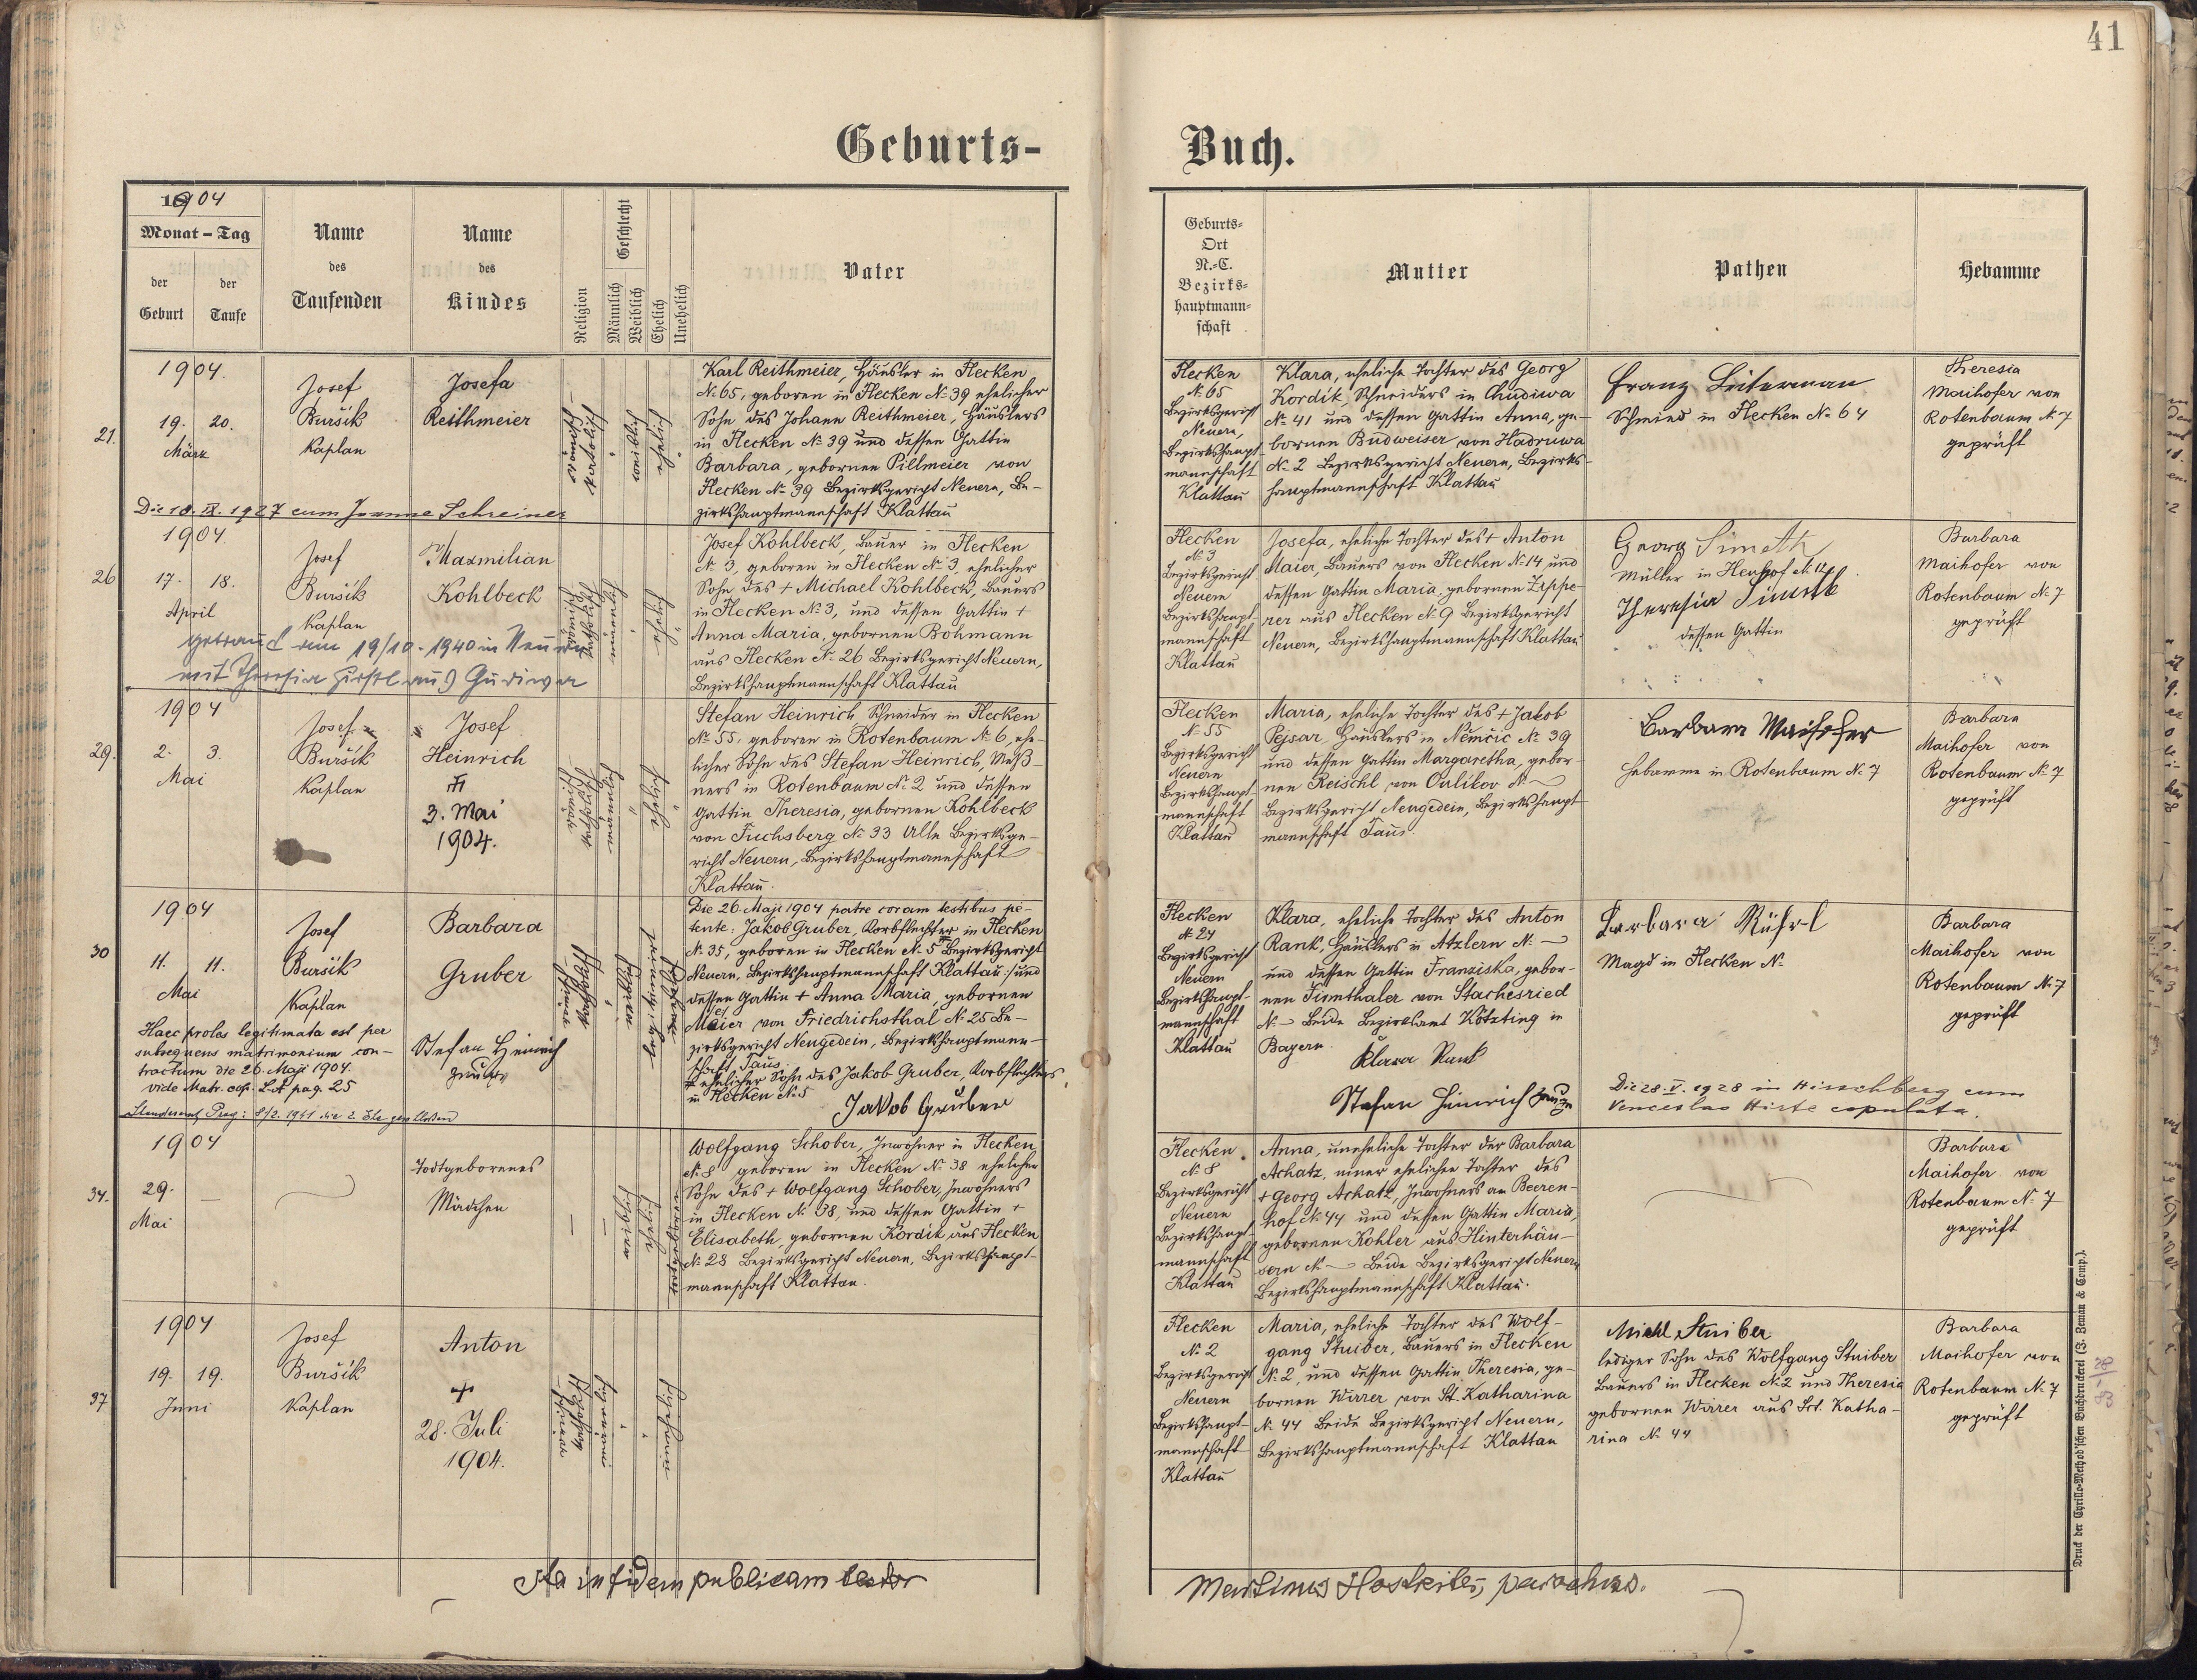 41
Geburts-
Buch.
1904
Monat – Tag
der Geburt
der Taufe
Name des Taufenden
Name des Kindes
Religion
Geschlecht
Männlich
Weiblich
Ehelich
Unehelich
Vater
Geburts-
Ort
N.-C.
Bezirks-
hauptmann-
schaft
Mutter
Pathen
Hebamme
21.
1904.
19. 20.
März
Josef
Buršík
Kaplan
Josefa
Reithmeier
katholisch
weiblich
ehelich
Karl Reithmeier, Häusler in Flecken
№ 65, geboren in Flecken № 39 ehelicher
Sohn des Johann Reithmeier, Häuslers
in Flecken № 39 und dessen Gattin
Barbara, gebornen Pillmeier von
Flecken № 39 Bezirksgericht Neuern, Be-
zirkshauptmannschaft Klattau
Die 18. IX. 1927 cum Joanne Schreiner
Flecken
№ 65
Bezirksgericht
Neuern,
Bezirkshaupt-
mannschaft
Klattau
Klara, eheliche Tochter des Georg
Kordik, Schneiders in Chudiwa
№ 41 und dessen Gattin Anna, ge-
bornen Budweiser von Hadruwa
№ 2 Bezirksgericht Neuern, Bezirks-
hauptmannschaft Klattau
Franz
Schmied in Flecken № 64
Theresia
Maihofer von
Rotenbaum № 7
geprüft
26
1904.
17. 18.
April
Josef
Buršík
Kaplan
Maxmilian
Kohlbeck
Josef Kohlbeck, Bauer in Flecken
№ 3, geboren in Flecken № 3, ehelicher
Sohn des + Michael Kohlbeck, Bauers
in Flecken № 3, und dessen Gattin +
Anna Maria, gebornen Bohmann
aus Flecken № 26 Bezirksgericht Neuern,
Bezirkshauptmannschaft Klattau
getraut am 19/10. 1940 in Neuern
mit Theresia aus
Flecken
№ 3
Bezirksgericht
Neuern
Bezirkshaupt-
mannschaft
Klattau
Josefa, eheliche Tochter des + Anton
Maier, Bauers von Flecken № 14 und
dessen Gattin Maria, gebornen Zeppe-
rer aus Flecken № 9 Bezirksgericht
Neuern, Bezirkshauptmannschaft Klattau
Georg Simeth
Müller in
Theresia Simeth
dessen Gattin
Barbara
Maihofer von
Rotenbaum № 7
geprüft
29.
1904
2. 3.
Mai
Josef
Buršík
Kaplan
Josef
Heinrich
3. Mai
1904.
Stefan Heinrich, Schneider in Flecken
№ 55, geboren in Rotenbaum № 6, ehe-
licher Sohn des Stefan Heinrich, Meß-
ners in Rotenbaum № 2 und dessen
Gattin Theresia, gebornen Kohlbeck
von Fuchsberg № 33 Alle Bezirksge-
richt Neuern, Bezirkshauptmannschaft
Klattau.
Flecken
№ 55
Bezirksgericht
Neuern
Bezirkshaupt-
mannschaft
Klattau
Maria, eheliche Tochter des + Jakob
Pejsar, Häuslers in Němčic № 39
und dessen Gattin Margaretha, gebor-
nen Reischl von Oulikov №
Bezirksgericht Neugedein, Bezirkshaupt-
mannschaft Taus.
Barbara Maihofer
Hebamme in Rotenbaum № 7
Barbara
Maihofer von
Rotenbaum № 7
geprüft
30
1904
11. 11.
Mai
Josef
Buršík
Kaplan
Barbara
Gruber
Die 26. Maji 1904 patre coram testibus pe-
tente: Jakob Gruber, Korbflechter in Flecken
№ 35, geboren in Flecken № 5 Bezirksgericht
Neuern, Bezirkshauptmannschaft Klattau, und
dessen Gattin + Anna Maria, gebornen
Meier von Friedrichsthal № 25 Be-
zirksgericht Neugedein, Bezirkshauptmann-
schaft Taus.
ehelicher Sohn des Jakob Gruber, Korbflechters
in Flecken № 5
Jakob Gruber
Haec proles legitimata est per
subsequens matrimonium con-
tractum die 26. Maji 1904.
vide Matr. cop. L.A pag. 25
Stefan Heinrich
Zeuge
Flecken
№ 24
Bezirksgericht
Neuern
Bezirkshaupt-
mannschaft
Klattau
Klara, eheliche Tochter des Anton
Rank, Häuslers in Atzlern № —
und dessen Gattin Franziska, gebor-
nen Firmthaler von Stachesried
№ — Beide Bezirksamt Kötzting in
Bayern.
Klara Rank
Stefan Heinrich Zeuge
Barbara Rührl
Magd in Flecken №
Die 28. V. 1928 in Hirschberg cum
Venceslao Hirte copulata.
Barbara
Maihofer von
Rotenbaum № 7
geprüft
34.
1904
29. —
Mai
Todtgeborenes
Mädchen
Wolfgang Schober, Inwohner in Flecken
№ 8 geboren in Flecken № 38 ehelicher
Sohn des + Wolfgang Schober, Inwohners
in Flecken № 38, und dessen Gattin +
Elisabeth, gebornen Kordik aus Flecken
№ 28 Bezirksgericht Neuern, Bezirkshaupt-
mannschaft Klattau.
Flecken
№ 8
Bezirksgericht
Neuern
Bezirkshaupt-
mannschaft
Klattau
Anna, uneheliche Tochter der Barbara
Achatz, einer ehelichen Tochter des
+ Georg Achatz, Inwohners am Beeren-
hof № 44 und dessen Gattin Maria,
gebornen Kohler aus Hinterhäu-
sern № — Beide Bezirksgericht Neuern
Bezirkshauptmannschaft Klattau.
Barbara
Maihofer von
Rotenbaum № 7
geprüft
37
1904
19. 19.
Juni
Josef
Buršík
Kaplan
Anton
+
28. Juli
1904.
Flecken
№ 2
Bezirksgericht
Neuern
Bezirkshaupt-
mannschaft
Klattau
Maria, eheliche Tochter des Wolf-
gang Stuiber, Bauers in Flecken
№ 2, und dessen Gattin Theresia, ge-
bornen Wirrer von St. Katharina
№ 44 Beide Bezirksgericht Neuern,
Bezirkshauptmannschaft Klattau
Michl Stuiber
lediger Sohn des Wolfgang Stuiber
Bauers in Flecken № 2 und Theresia
gebornen Wirrer aus Sct. Katha-
rina № 44
Barbara
Maihofer von
Rotenbaum № 7
geprüft
Ita in fidem publicam testor
Martinus parochus.
Druck der Cyrillo-Method'schen Buchdruckerei (J. Zeman & Comp.).